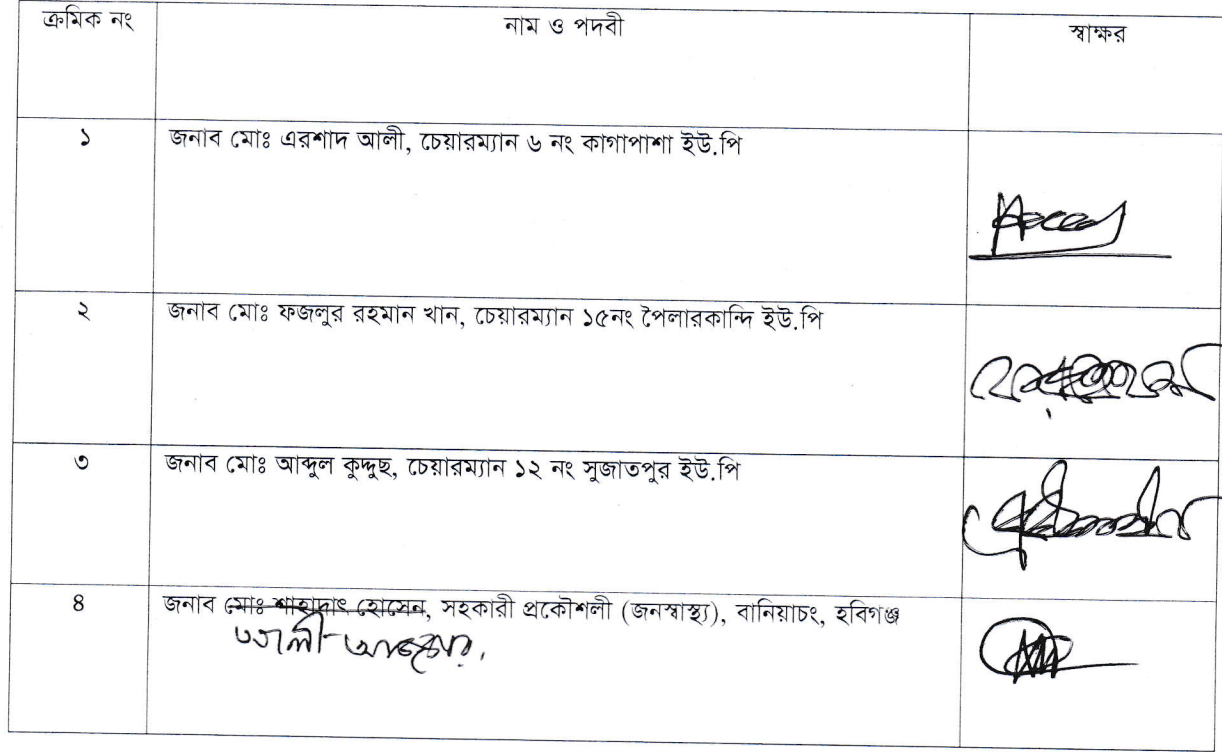 ক্রমিক নং নাম ও পদবী স্বাক্ষর
১ জনাব মোঃ এরশাদ আলী, চেয়ারম্যান ৬ নং কাগাপাশা ইউ.পি
২ জনাব মোঃ ফজলুর রহমান খান, চেয়ারম্যান ১৫নং পৈলারকান্দি ইউ.পি
৩ জনাব মোঃ আব্দুল কুদ্দুছ, চেয়ারম্যান ১২ নং সুজাতপুর ইউ.পি
৪ জনাব মোঃ শাহাদাৎ হোসেন, সহকারী প্রকৌশলী (জনস্বাস্থ্য), বানিয়াচং, হবিগঞ্জ
আলী